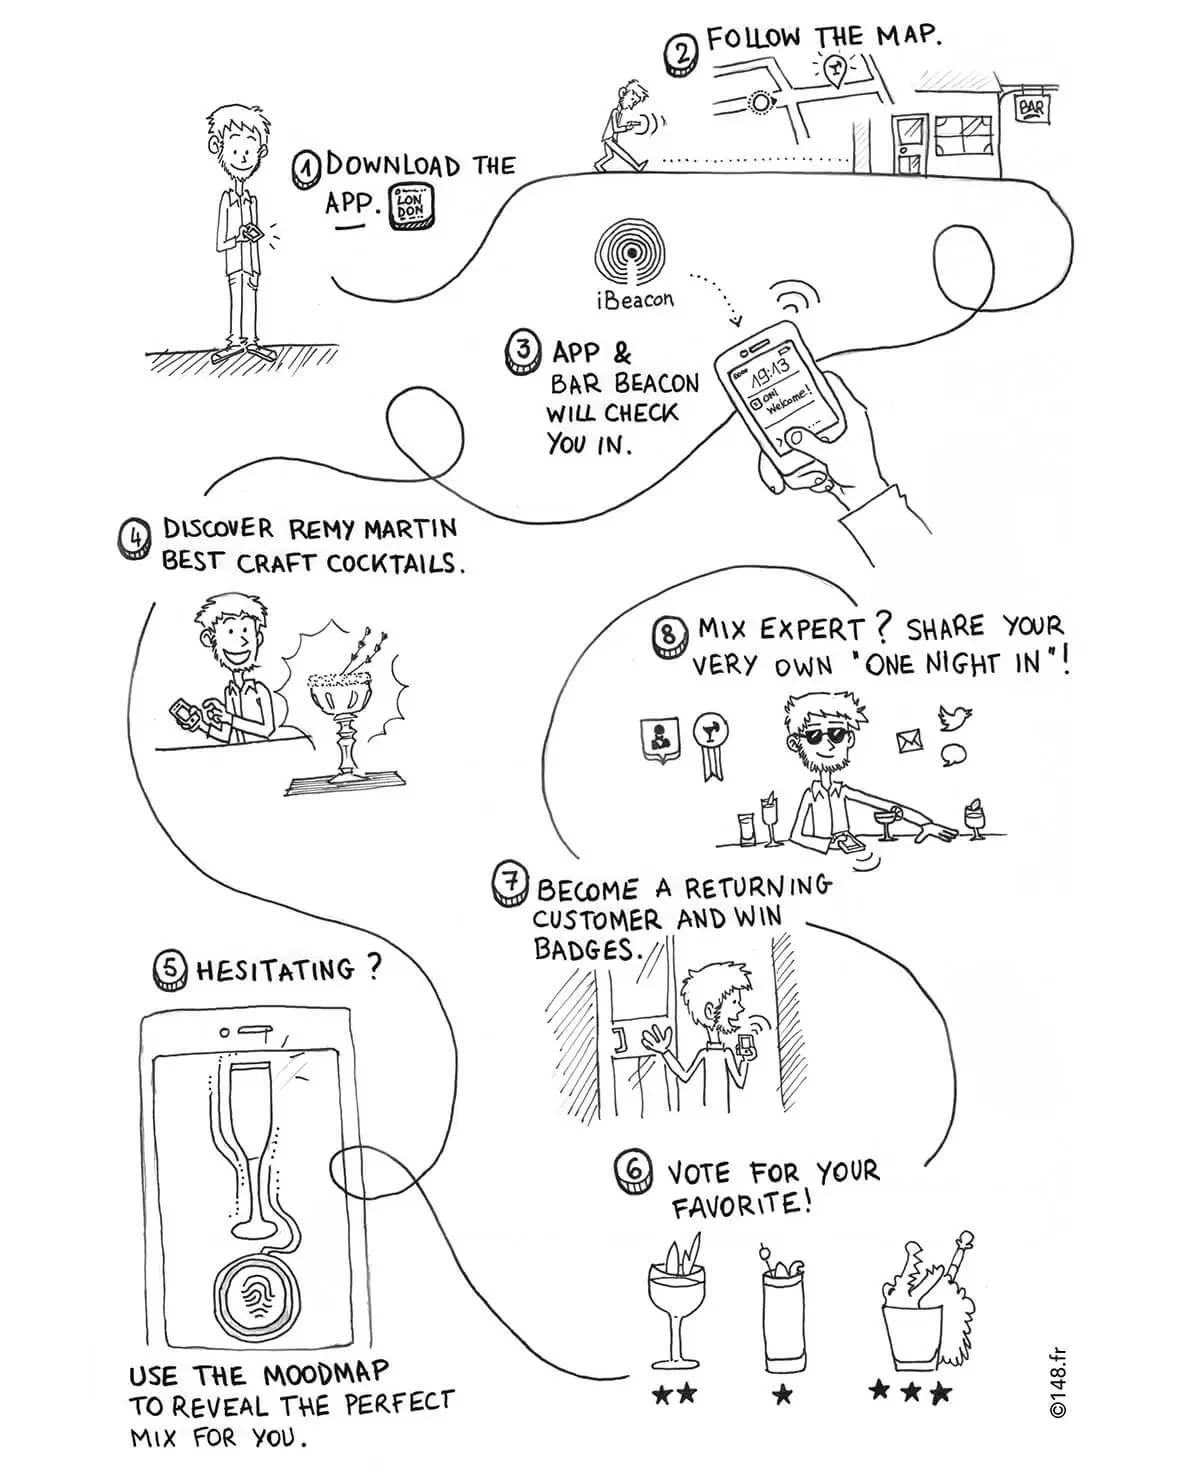 1 DOWNLOAD THE
APP.
LON
DON
2 FOLLOW THE MAP.
BAR
iBeacon
3 APP &
BAR BEACON
WILL CHECK
YOU IN.
19:13
ON!
Welcome!
4 DISCOVER REMY MARTIN
BEST CRAFT COCKTAILS.
5 HESITATING ?
USE THE MOODMAP
TO REVEAL THE PERFECT
MIX FOR YOU.
6 VOTE FOR YOUR
FAVORITE!
7 BECOME A RETURNING
CUSTOMER AND WIN
BADGES.
8 MIX EXPERT ? SHARE YOUR
VERY OWN "ONE NIGHT IN"!
©148.fr